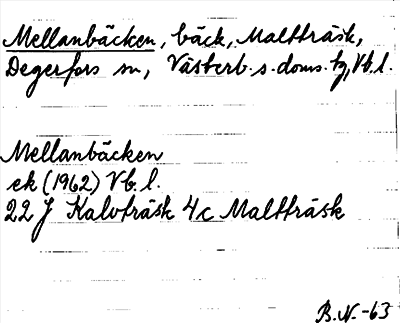 Mellanbäcken, bäck, Maltträsk,
Degerfors sn, Västerb. s. doms. tg, Vb. l.
Mellanbäcken
ek (1962) Vb. l.
22 J Kalvträsk 4c Maltträsk
B.N.-63